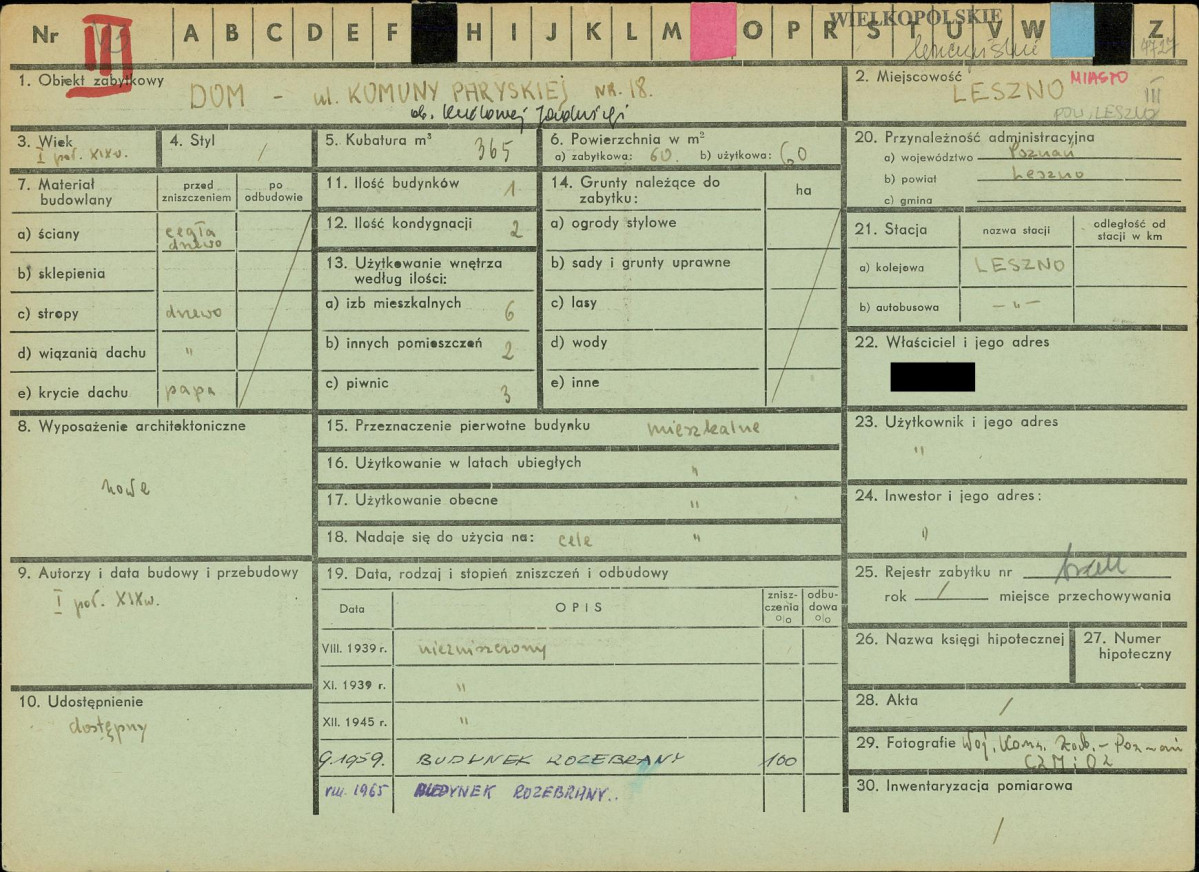 Nr III A B C D E F H I J K L M O P R S T U V W Z
WIELKOPOLSKIE
4727
1. Obiekt zabytkowy DOM - ul. KOMUNY PARYSKIEJ NR. 18.
ob. Królowej Jadwigi
2. Miejscowość LESZNO MIASTO
III
POW. LESZNO
3. Wiek
I poł. XIXw.
4. Styl /
5. Kubatura m³ 365
6. Powierzchnia w m²
a) zabytkowa: 60. b) użytkowa: 60
7. Materiał budowlany
przed zniszczeniem
po odbudowie
a) ściany cegła
drewo
b) sklepienia
c) stropy drewo
d) wiązania dachu "
e) krycie dachu papa
8. Wyposażenie architektoniczne
9. Autorzy i data budowy i przebudowy
I poł. XIXw.
10. Udostępnienie
dostępny
11. Ilość budynków 1
12. Ilość kondygnacji 2
13. Użytkowanie wnętrza
według ilości:
a) izb mieszkalnych 6
b) innych pomieszczeń 2
c) piwnic 3
14. Grunty należące do
zabytku:
ha
a) ogrody stylowe
b) sady i grunty uprawne
c) lasy
d) wody
e) inne
15. Przeznaczenie pierwotne budynku mieszkalne
16. Użytkowanie w latach ubiegłych "
17. Użytkowanie obecne "
18. Nadaje się do użycia na: cele "
19. Data, rodzaj i stopień zniszczeń i odbudowy
Data
OPIS
znisz-
czenia
%
odbu-
dowa
%
VIII. 1939 r. niezniszczony
XI. 1939 r. "
XII. 1945 r. "
9.1959. BUDYNEK ROZEBRANY 100
VIII. 1965 BUDYNEK ROZEBRANY..
20. Przynależność administracyjna
a) województwo Poznań
b) powiat Leszno
c) gmina
21. Stacja
nazwa stacji
odległość od
stacji w km
a) kolejowa LESZNO
b) autobusowa -"-
22. Właściciel i jego adres
23. Użytkownik i jego adres
"
24. Inwestor i jego adres:
"
25. Rejestr zabytku nr brak
rok / miejsce przechowywania
26. Nazwa księgi hipotecznej
27. Numer
hipoteczny
28. Akta /
29. Fotografie Woj. Kons. Zab. - Poznań
CZMiOZ
30. Inwentaryzacja pomiarowa
/